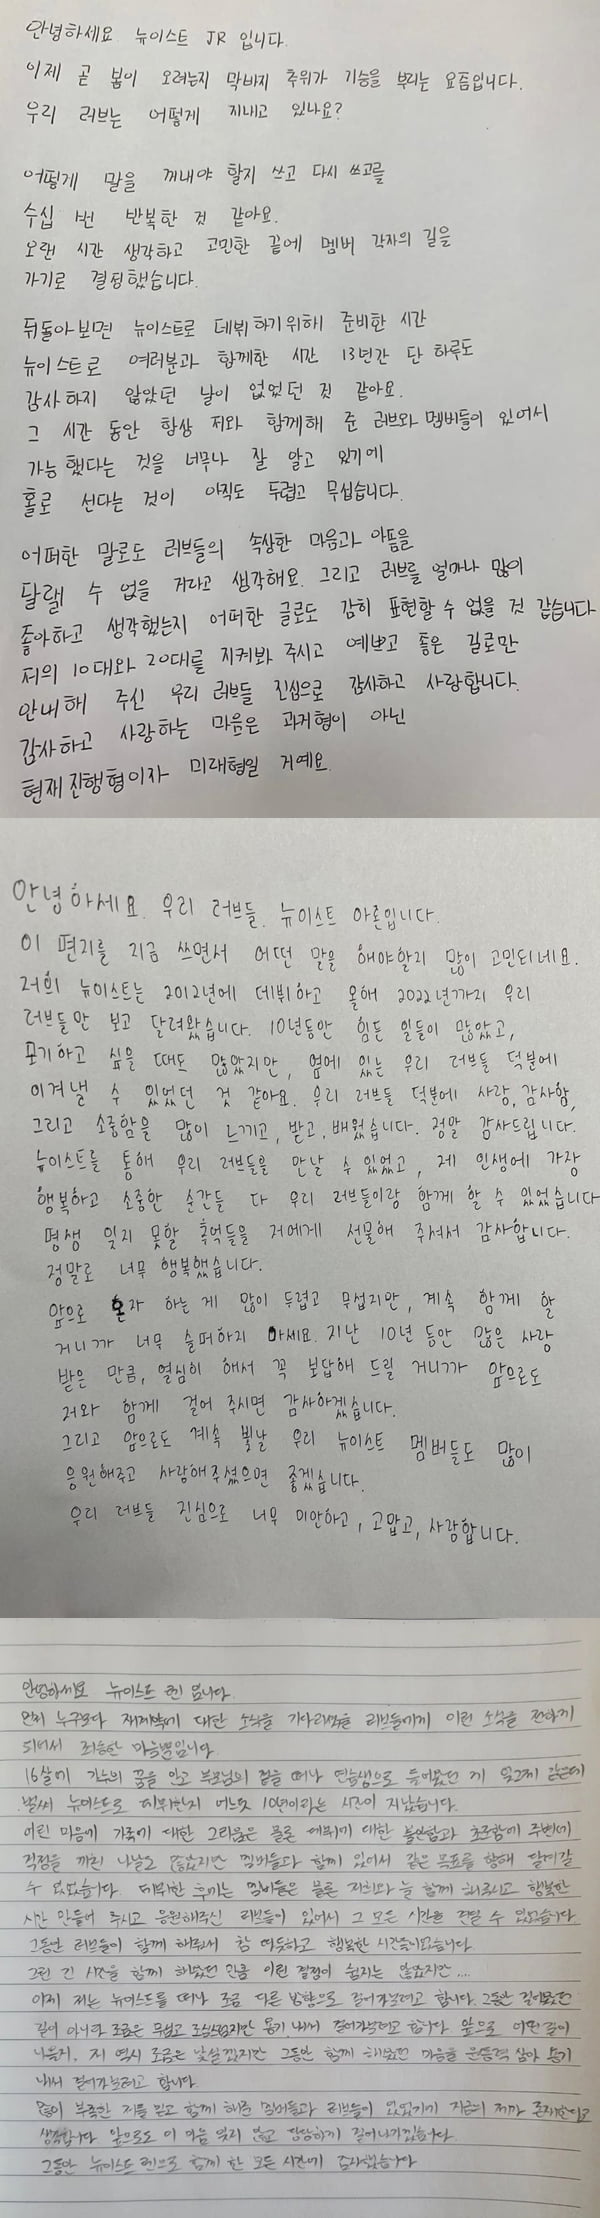 안녕하세요 뉴이스트 JR 입니다.
이제 곧 봄이 오려는지 막바지 추위가 기승을 부리는 요즘입니다.
우리 러브는 어떻게 지내고 있나요?
어떻게 말을 꺼내야 할지 쓰고 다시 쓰고를
수십 번 반복한 것 같아요.
오랜 시간 생각하고 고민한 끝에 멤버 각자의 길을
가기로 결정했습니다.
뒤돌아보면 뉴이스트로 데뷔하기위해 준비한 시간
뉴이스트로 여러분과 함께한 시간 13년간 단 하루도
감사하지 않았던 날이 없었던 것 같아요.
그 시간 동안 항상 저와 함께해 준 러브와 멤버들이 있어서
가능했다는 것을 너무나 잘 알고 있기에
홀로 선다는 것이 아직도 두렵고 무섭습니다.
어떠한 말로도 러브들의 속상한 마음과 아픔을
달랠 수 없을 거라고 생각해요. 그리고 러브를 얼마나 많이
좋아하고 생각했는지 어떠한 글로도 감히 표현할 수 없을 것 같습니다
저의 10대와 20대를 지켜봐 주시고 예쁘고 좋은 길로만
안내해 주신 우리 러브들 진심으로 감사하고 사랑합니다.
감사하고 사랑하는 마음은 과거형이 아닌
현재진행형이자 미래형일 거예요.
안녕하세요. 우리 러브들. 뉴이스트 아론입니다.
이 편지를 지금 쓰면서 어떤 말을 해야할지 많이 고민되네요.
저희 뉴이스트는 2012년에 데뷔하고 올해 2022년까지 우리
러브들만 보고 달려왔습니다. 10년동안 힘든 일들이 많았고,
포기하고 싶을 때도 많았지만, 옆에 있는 우리 러브들 덕분에
이겨낼 수 있었던 것 같아요. 우리 러브들 덕분에 사랑, 감사함,
그리고 소중함을 많이 느끼고, 받고, 배웠습니다. 정말 감사드립니다.
뉴이스트를 통해 우리 러브들을 만날 수 있었고, 제 인생에 가장
행복하고 소중한 순간들 다 우리 러브들이랑 함께 할 수 있었습니다
평생 잊지 못할 추억들을 저에게 선물해 주셔서 감사합니다.
정말로 너무 행복했습니다.
앞으로 혼자 하는 게 많이 두렵고 무섭지만, 계속 함께 할
거니까 너무 슬퍼하지 마세요. 지난 10년 동안 많은 사랑
받은 만큼, 열심히 해서 꼭 보답해 드릴 거니까 앞으로도
저와 함께 걸어 주시면 감사하겠습니다.
그리고 앞으로도 계속 빛날 우리 뉴이스트 멤버들도 많이
응원해주고 사랑해주셨으면 좋겠습니다.
우리 러브들 진심으로 너무 미안하고, 고맙고, 사랑합니다.
안녕하세요 뉴이스트 렌 입니다
먼저 누구보다 재계약에 대한 소식을 기다리셨을 러브들에게 이런 소식을 전하게
되어서 죄송한 마음뿐입니다
16살에 가수의 꿈을 안고 부모님의 집을 떠나 연습생으로 들어왔던 게 엊그제 같은데
벌써 뉴이스트로 데뷔한지 어느덧 10년이라는 시간이 지났습니다.
어린 마음에 가족에 대한 그리움은 물론 데뷔에 대한 불안함과 초조함에 주변에
걱정을 끼친 나날도 많았지만 멤버들과 함께 있어서 같은 목표를 향해 달려갈
수 있었습니다. 데뷔한 후에는 멤버들은 물론 저희와 늘 함께 해주시고 행복한
시간 만들어 주시고 응원해주신 러브들이 있어서 그 모든 시간을 견딜 수 있었습니다.
그동안 러브들이 함께 해줘서 참 따뜻하고 행복한 시간들이었습니다
그런 긴 시간을 함께 해왔던 만큼 이런 결정이 쉽지는 않았지만...
이제 저는 뉴이스트를 떠나 조금 다른 방향으로 걸어가보려고 합니다. 그동안 걸어왔던
길이 아니라 조금은 무섭고 조심스럽지만 용기 내서 걸어가보려고 합니다. 앞으로 어떤 길이
나올지, 저 역시 조금은 낯설겠지만 그동안 함께 해왔던 마음을 원동력 삼아 용기
내서 걸어가보려고 합니다.
많이 부족한 저를 믿고 함께 해준 멤버들과 러브들이 있었기에 지금의 제가 존재한다고
생각합니다 앞으로도 이 마음 잊지 않고 당당하게 걸어나가겠습니다.
그동안 뉴이스트 렌으로 함께 한 모든 시간에 감사했습니다